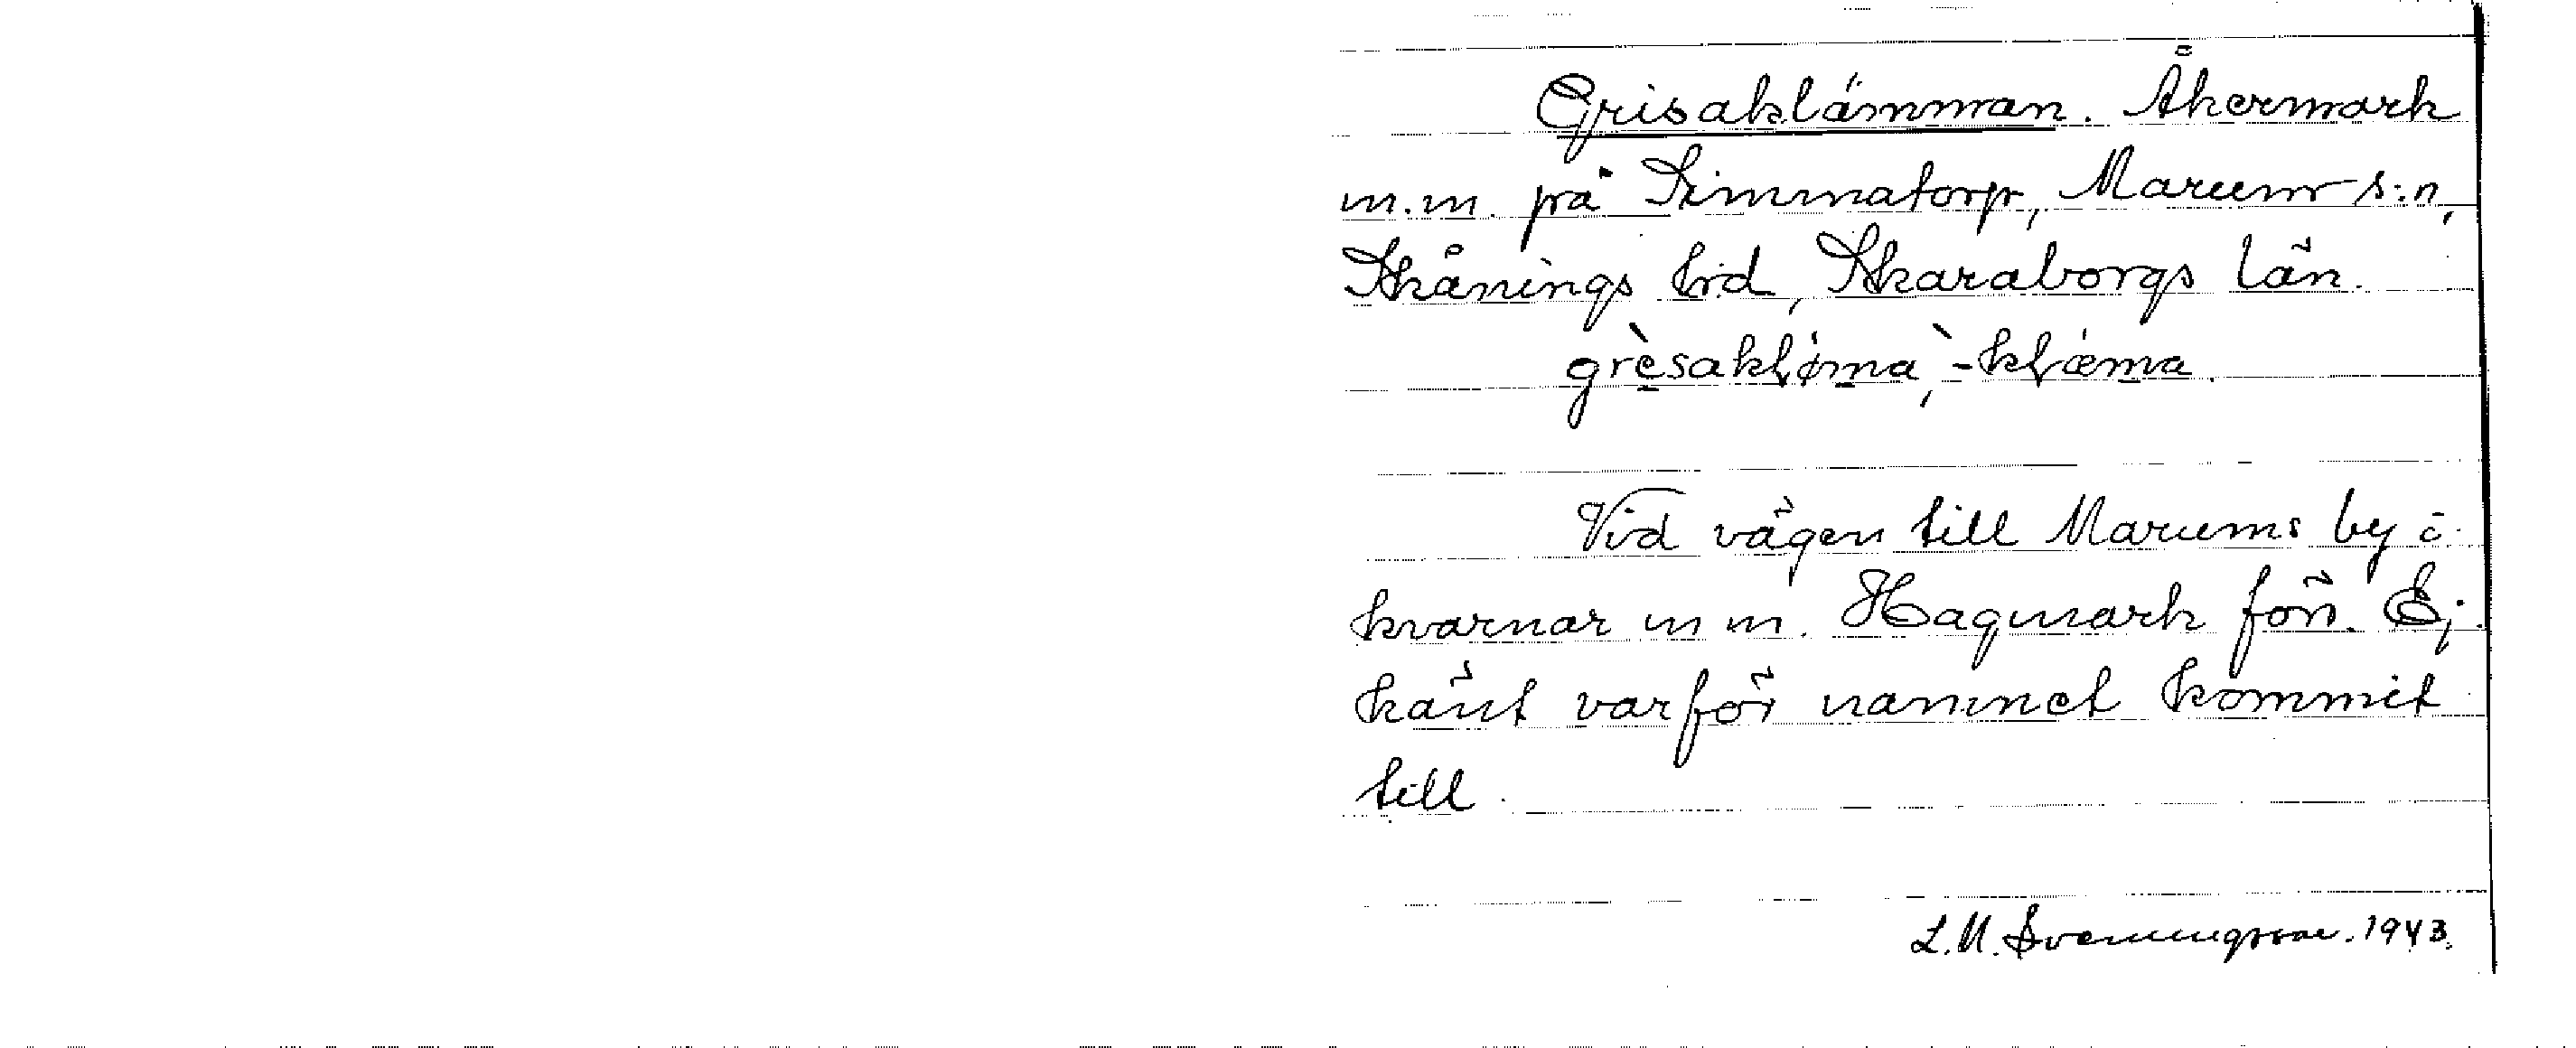 Grisaklämman. Åkermark
m.m. på Simmatorp, Marum s:n,
Skånings hd, Skaraborgs län.
grèsaklǿma, -klæ̀ma.
Vid vägen till Marums by o.
kvarnar m m. Hagmark förr. Ej
känt varför namnet kommit
till.
L.M. Svenungsson. 1943.